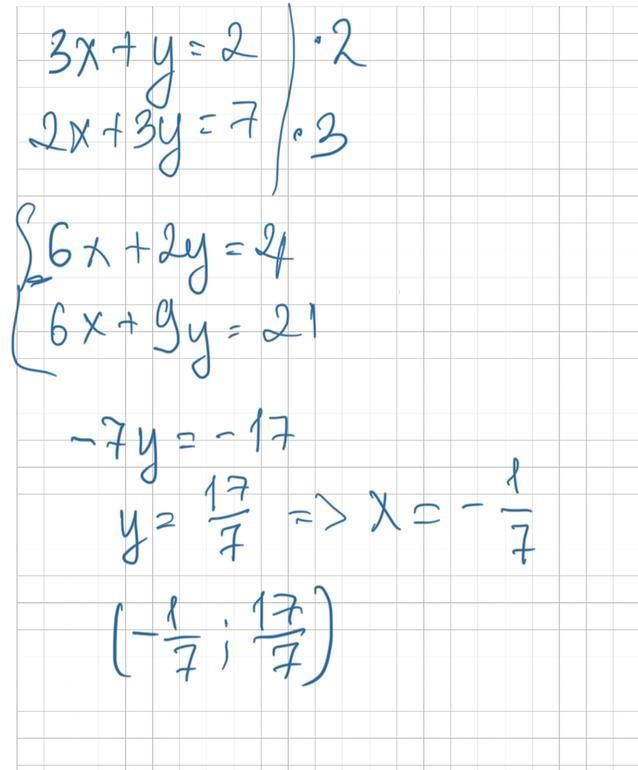 3x + y = 2 | · 2
2x + 3y = 7 | · 3
6x + 2y = 4
6x + 9y = 21
-7y = -17
y = 17/7 => x = -1/7
(-1/7 ; 17/7)